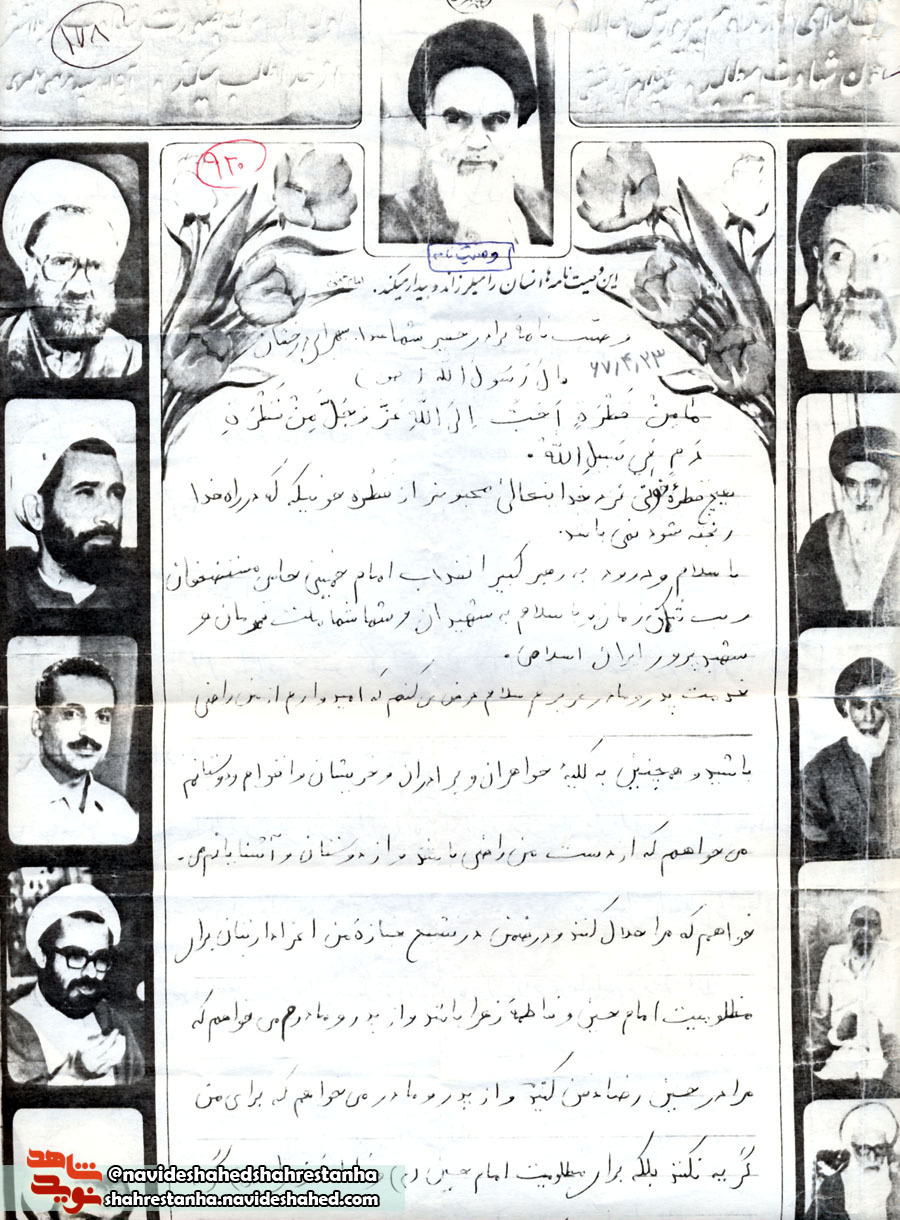 ۱۷۸
۹۲۰
وصیت نامه
این وصیت نامه ها انسان را میلرزاند و بیدار میکند. امام خمینی
وصیت نامهٔ برادر
۶۷,۴,۲۳
قال رَسول الله (ص)
مٰا مِنْ قَطْرَةٍ اَحَبُّ اِلَی اللهِ عَزَّ وَ جَلَّ مِنْ قَطْرَةِ
دَمٍ فِی سَبیلِ اللهْ.
هیچ قطرهٔ خونی نزد خدا تعالی محبوبتر از قطره خونیکه که در راه خدا
ریخته شود نمی باشد.
با سلام و درود به رهبر کبیر انقلاب امام خمینی حامی مستضعفان
و بت شکن زمان و با سلام به شهیدان و شما ملت قهرمان و
شهید پرور ایران اسلامی.
خدمت پدر و مادر عزیزم سلام عرض می کنم که امیدوارم از من راضی
باشید و همچنین به کلیهٔ خواهران و برادران و خویشان و اقوام و دوستانم
می خواهم که از دست من راضی باشند و از دوستان و آشنایانم می
خواهم که مرا حلال کنند و در ضمن در تشیع جنازهٔ من اعزاداریتان برای
مظلومیت امام حسین و فاطمهٔ زهرا باشد و از پدر و مادرم می خواهم که
مرا در خمین رضا دفن کنید و از پدر و مادر می خواهم که برای من
گریه نکنند بلکه برای مظلومیت امام حسین (ع)
شاهد
نوید
@navideshahedshahrestanha
shahrestanha.navideshahed.com